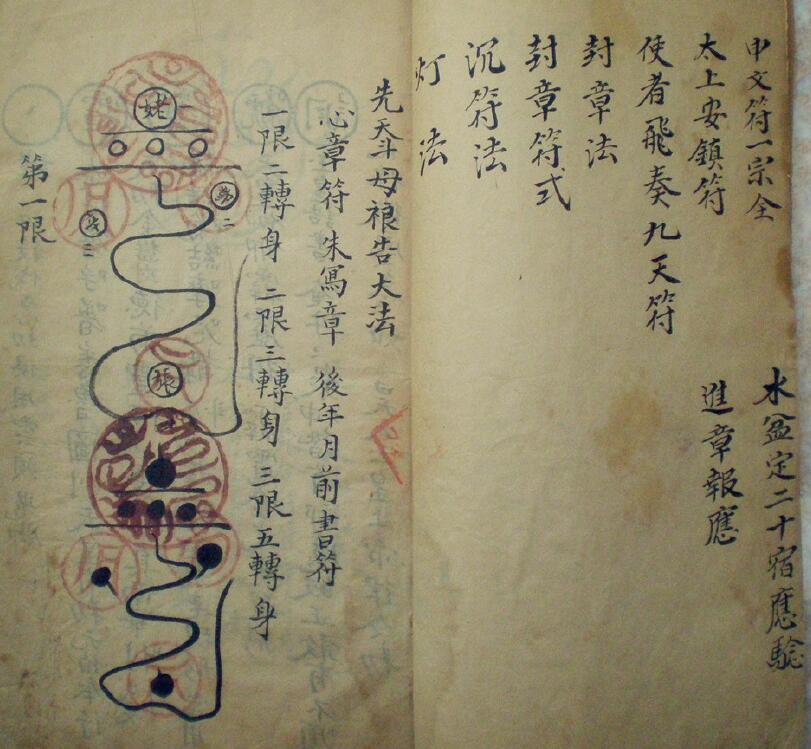 申文符一宗全
水盆定二十宿應驗
太上安鎮符
進章報應
使者飛奏九天符
封章法
封章符式
沉符法
灯法
先天斗母 告大法
心章符 朱寫章 後年月前書符
一限二轉身 二限三轉身 三限五轉身
姥一
二
三
第一限